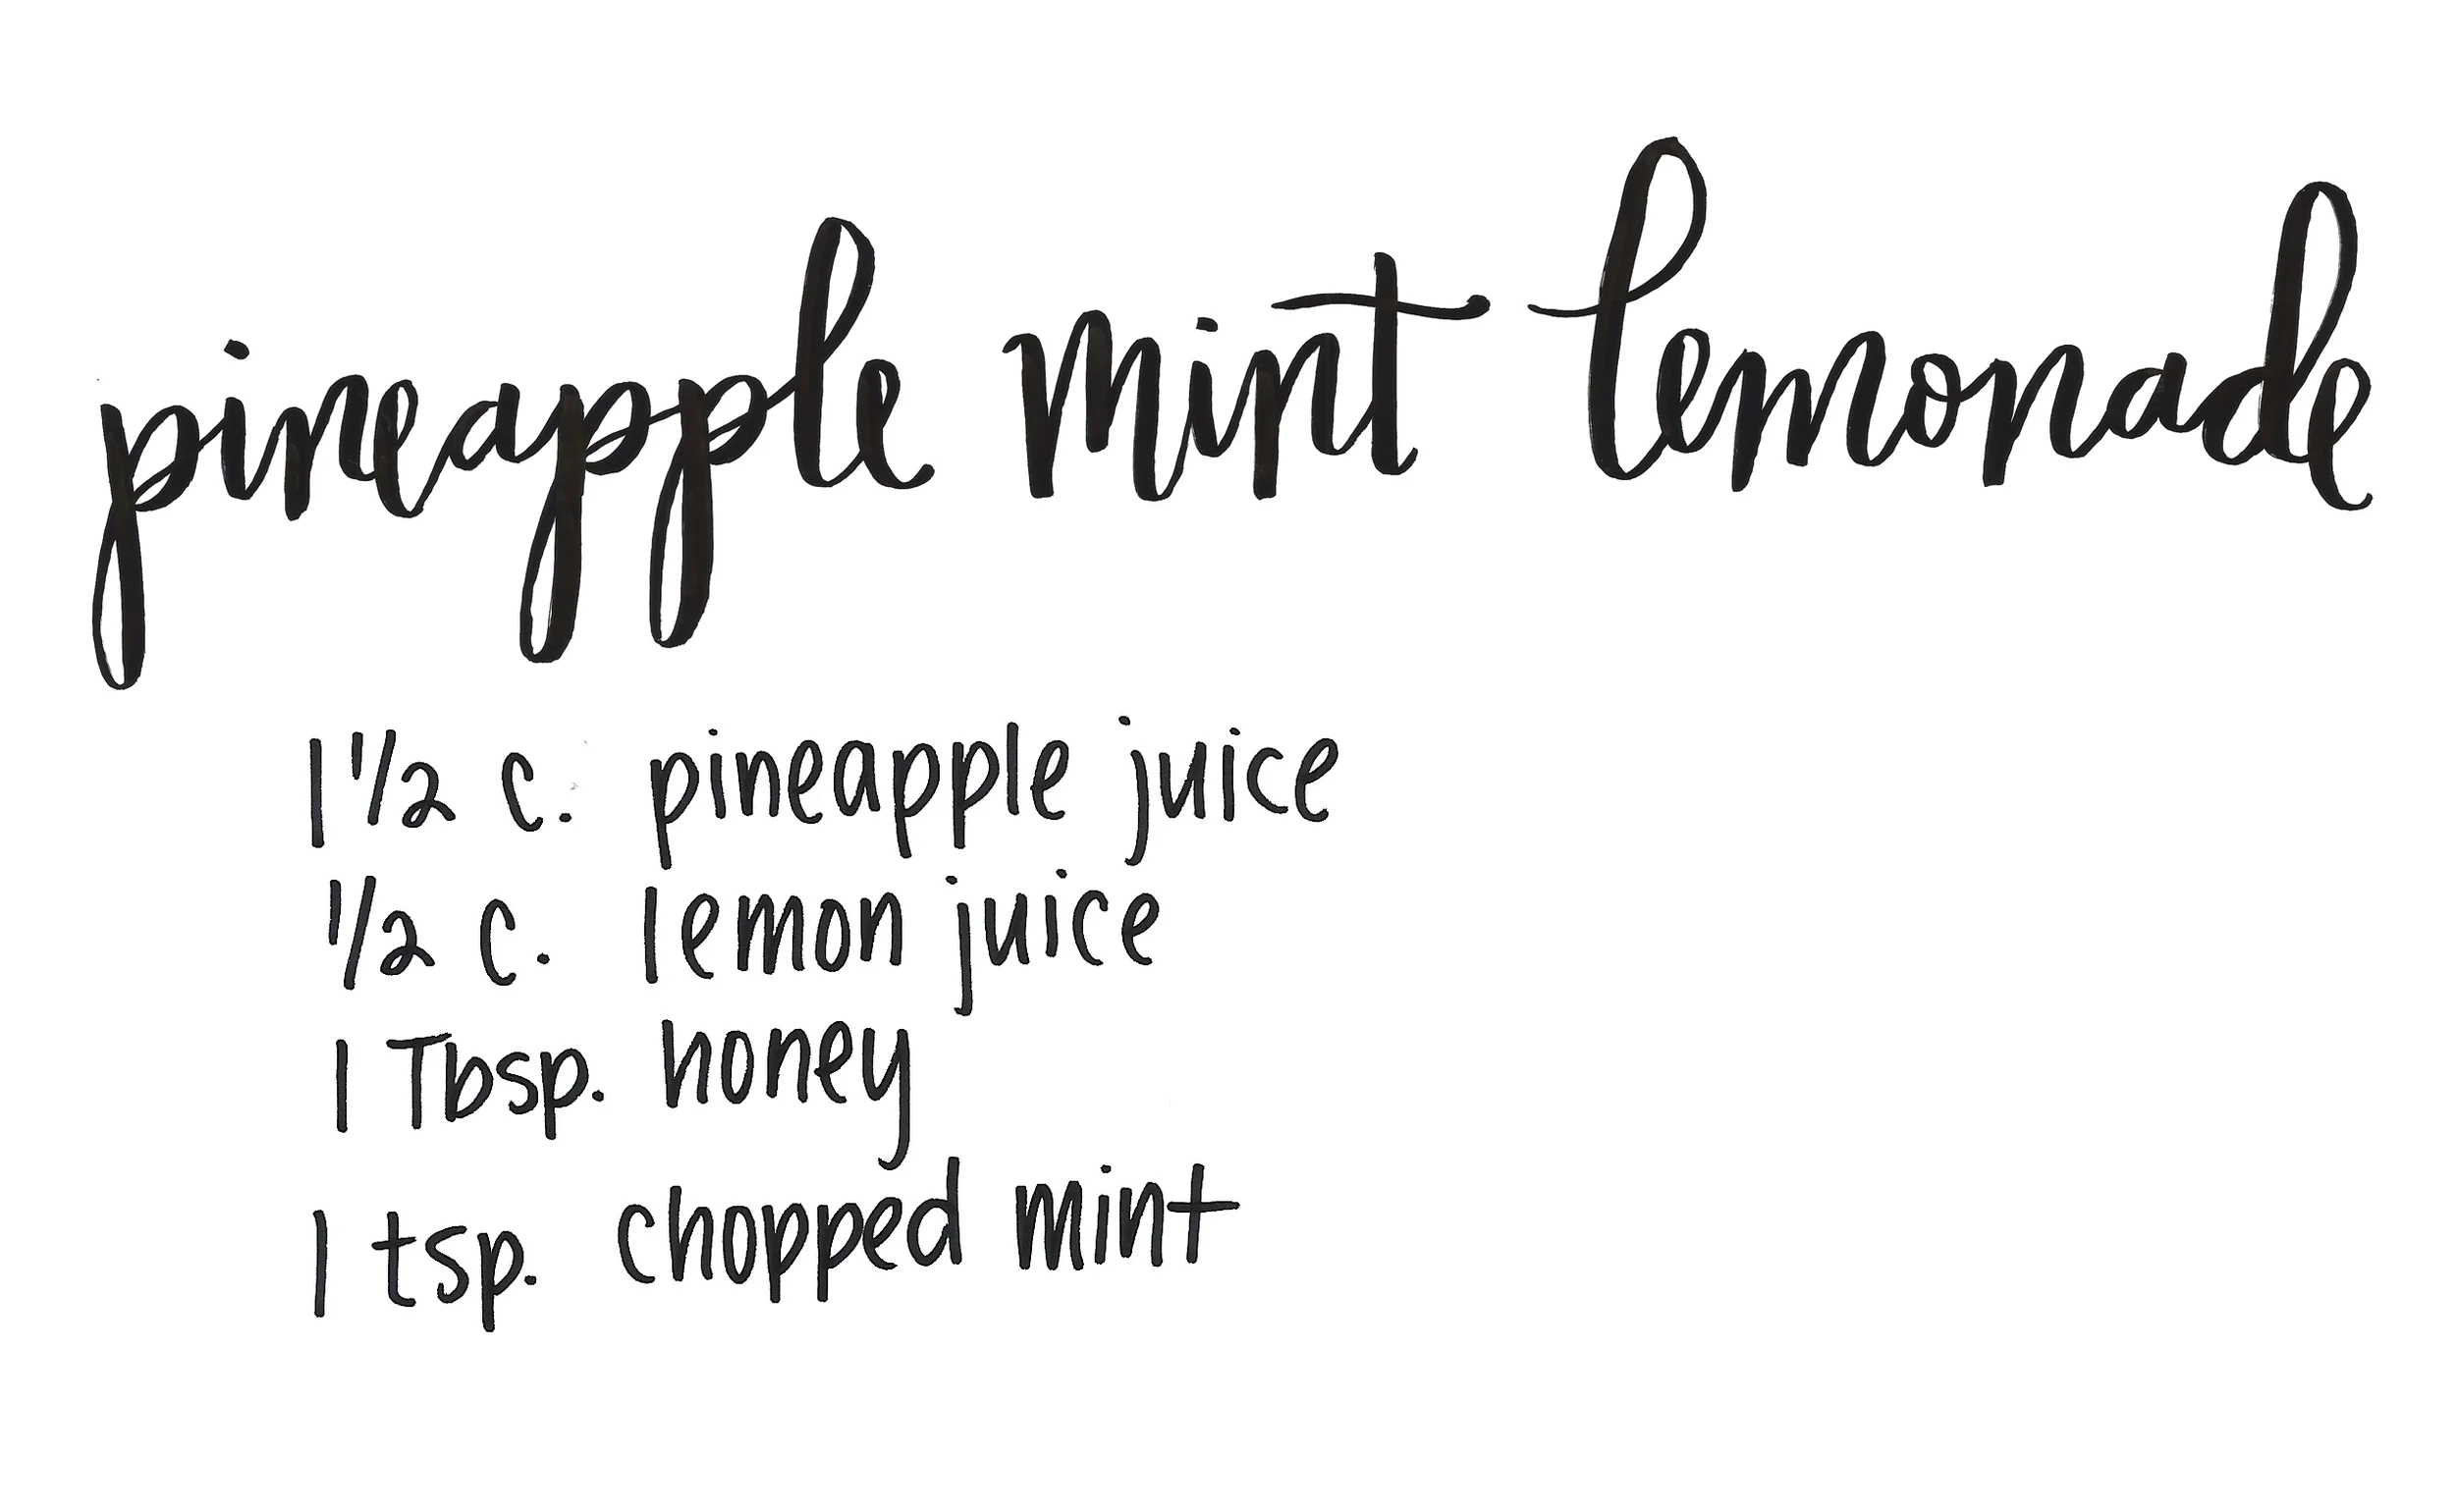 pineapple mint lemonade
1 1/2 c. pineapple juice
1/2 c. lemon juice
1 Tbsp. honey
1 tsp. chopped mint